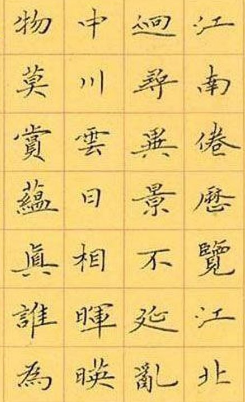 江南倦歷覽江北
逈尋異景不延亂
中川雲日相暉暎
物莫賞蘊眞誰為